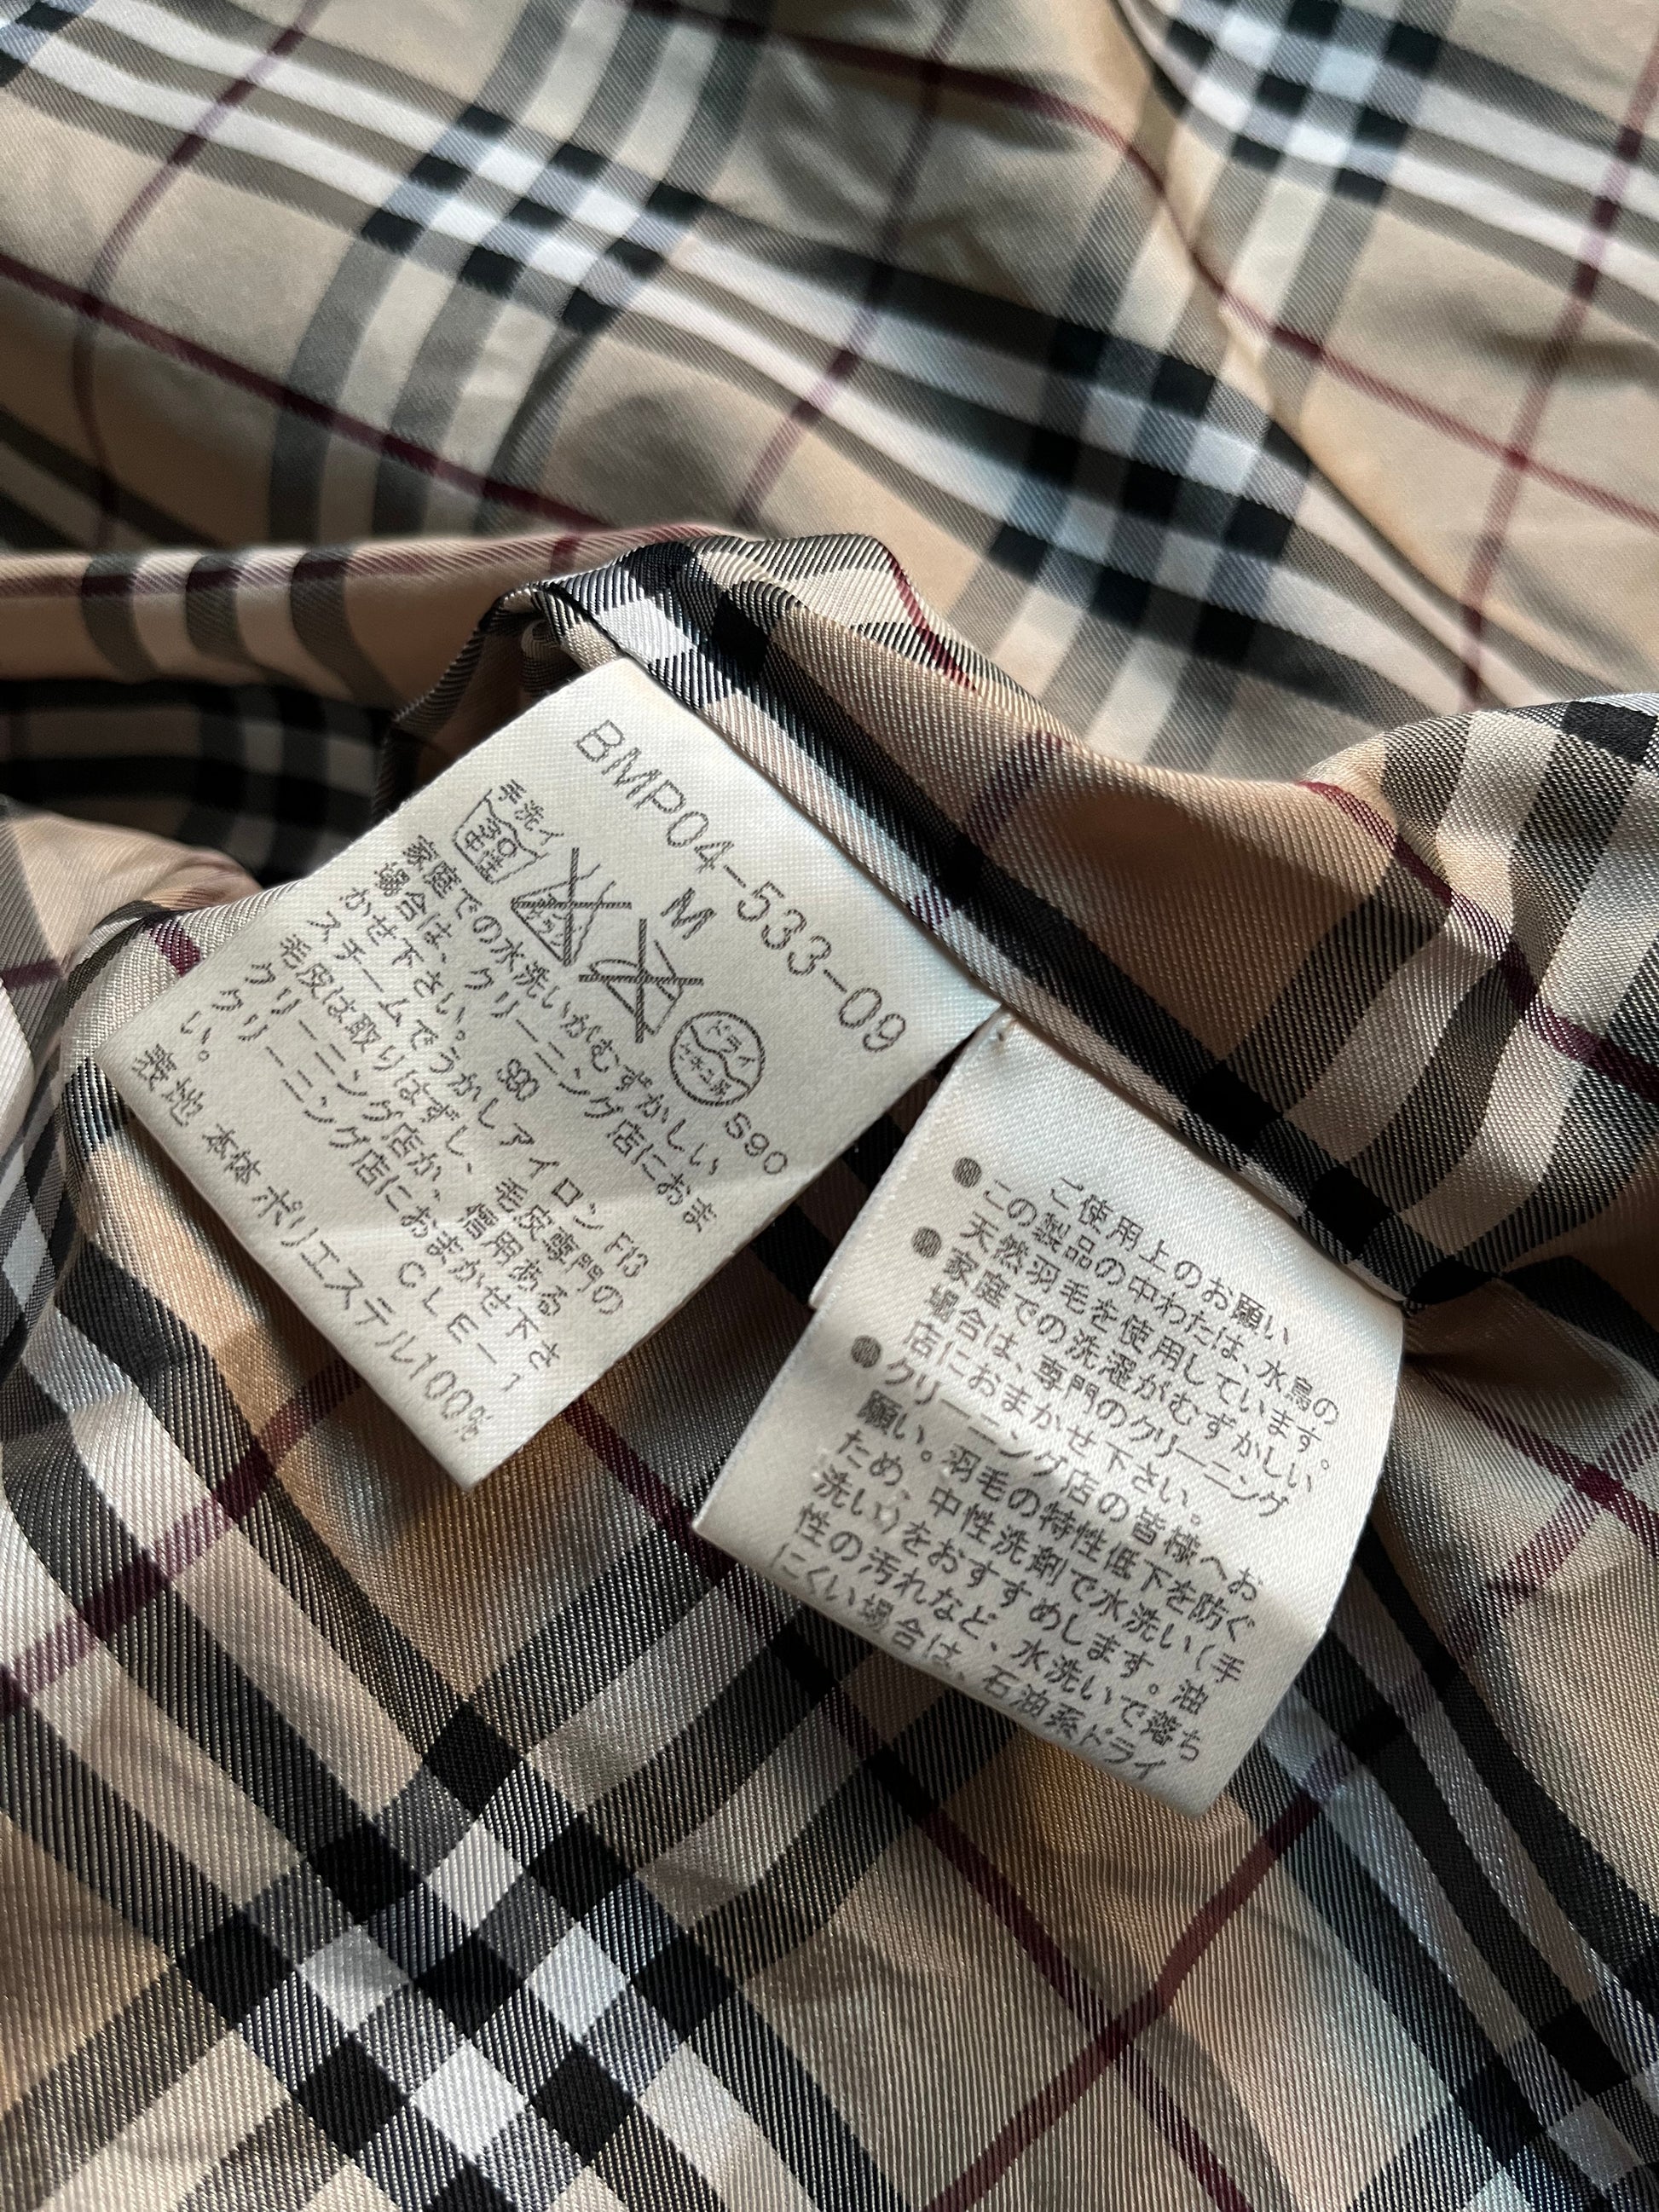 BMP04-533-09
M
手洗イ
30
中性
エンソ
サラシ
ドライ
セキユ系
S90
家庭での水洗いがむずかしい
場合は、クリーニング店におま
かせ下さい。 S80
スチームでうかしアイロン F13
毛皮は取りはずし、毛皮専門の
クリーニング店か、信用ある
クリーニング店におまかせ下さ
い。 CLE-1
表地 本体 ポリエステル100%
ご使用上のお願い
●この製品の中わたは、水鳥の
天然羽毛を使用しています。
●家庭での洗濯がむずかしい
場合は、専門のクリーニング
店におまかせ下さい。
●クリーニング店の皆様へお
願い。羽毛の特性低下を防ぐ
ため、中性洗剤で水洗い(手
洗い)をおすすめします。油
性の汚れなど、水洗いで落ち
にくい場合は、石油系ドライ